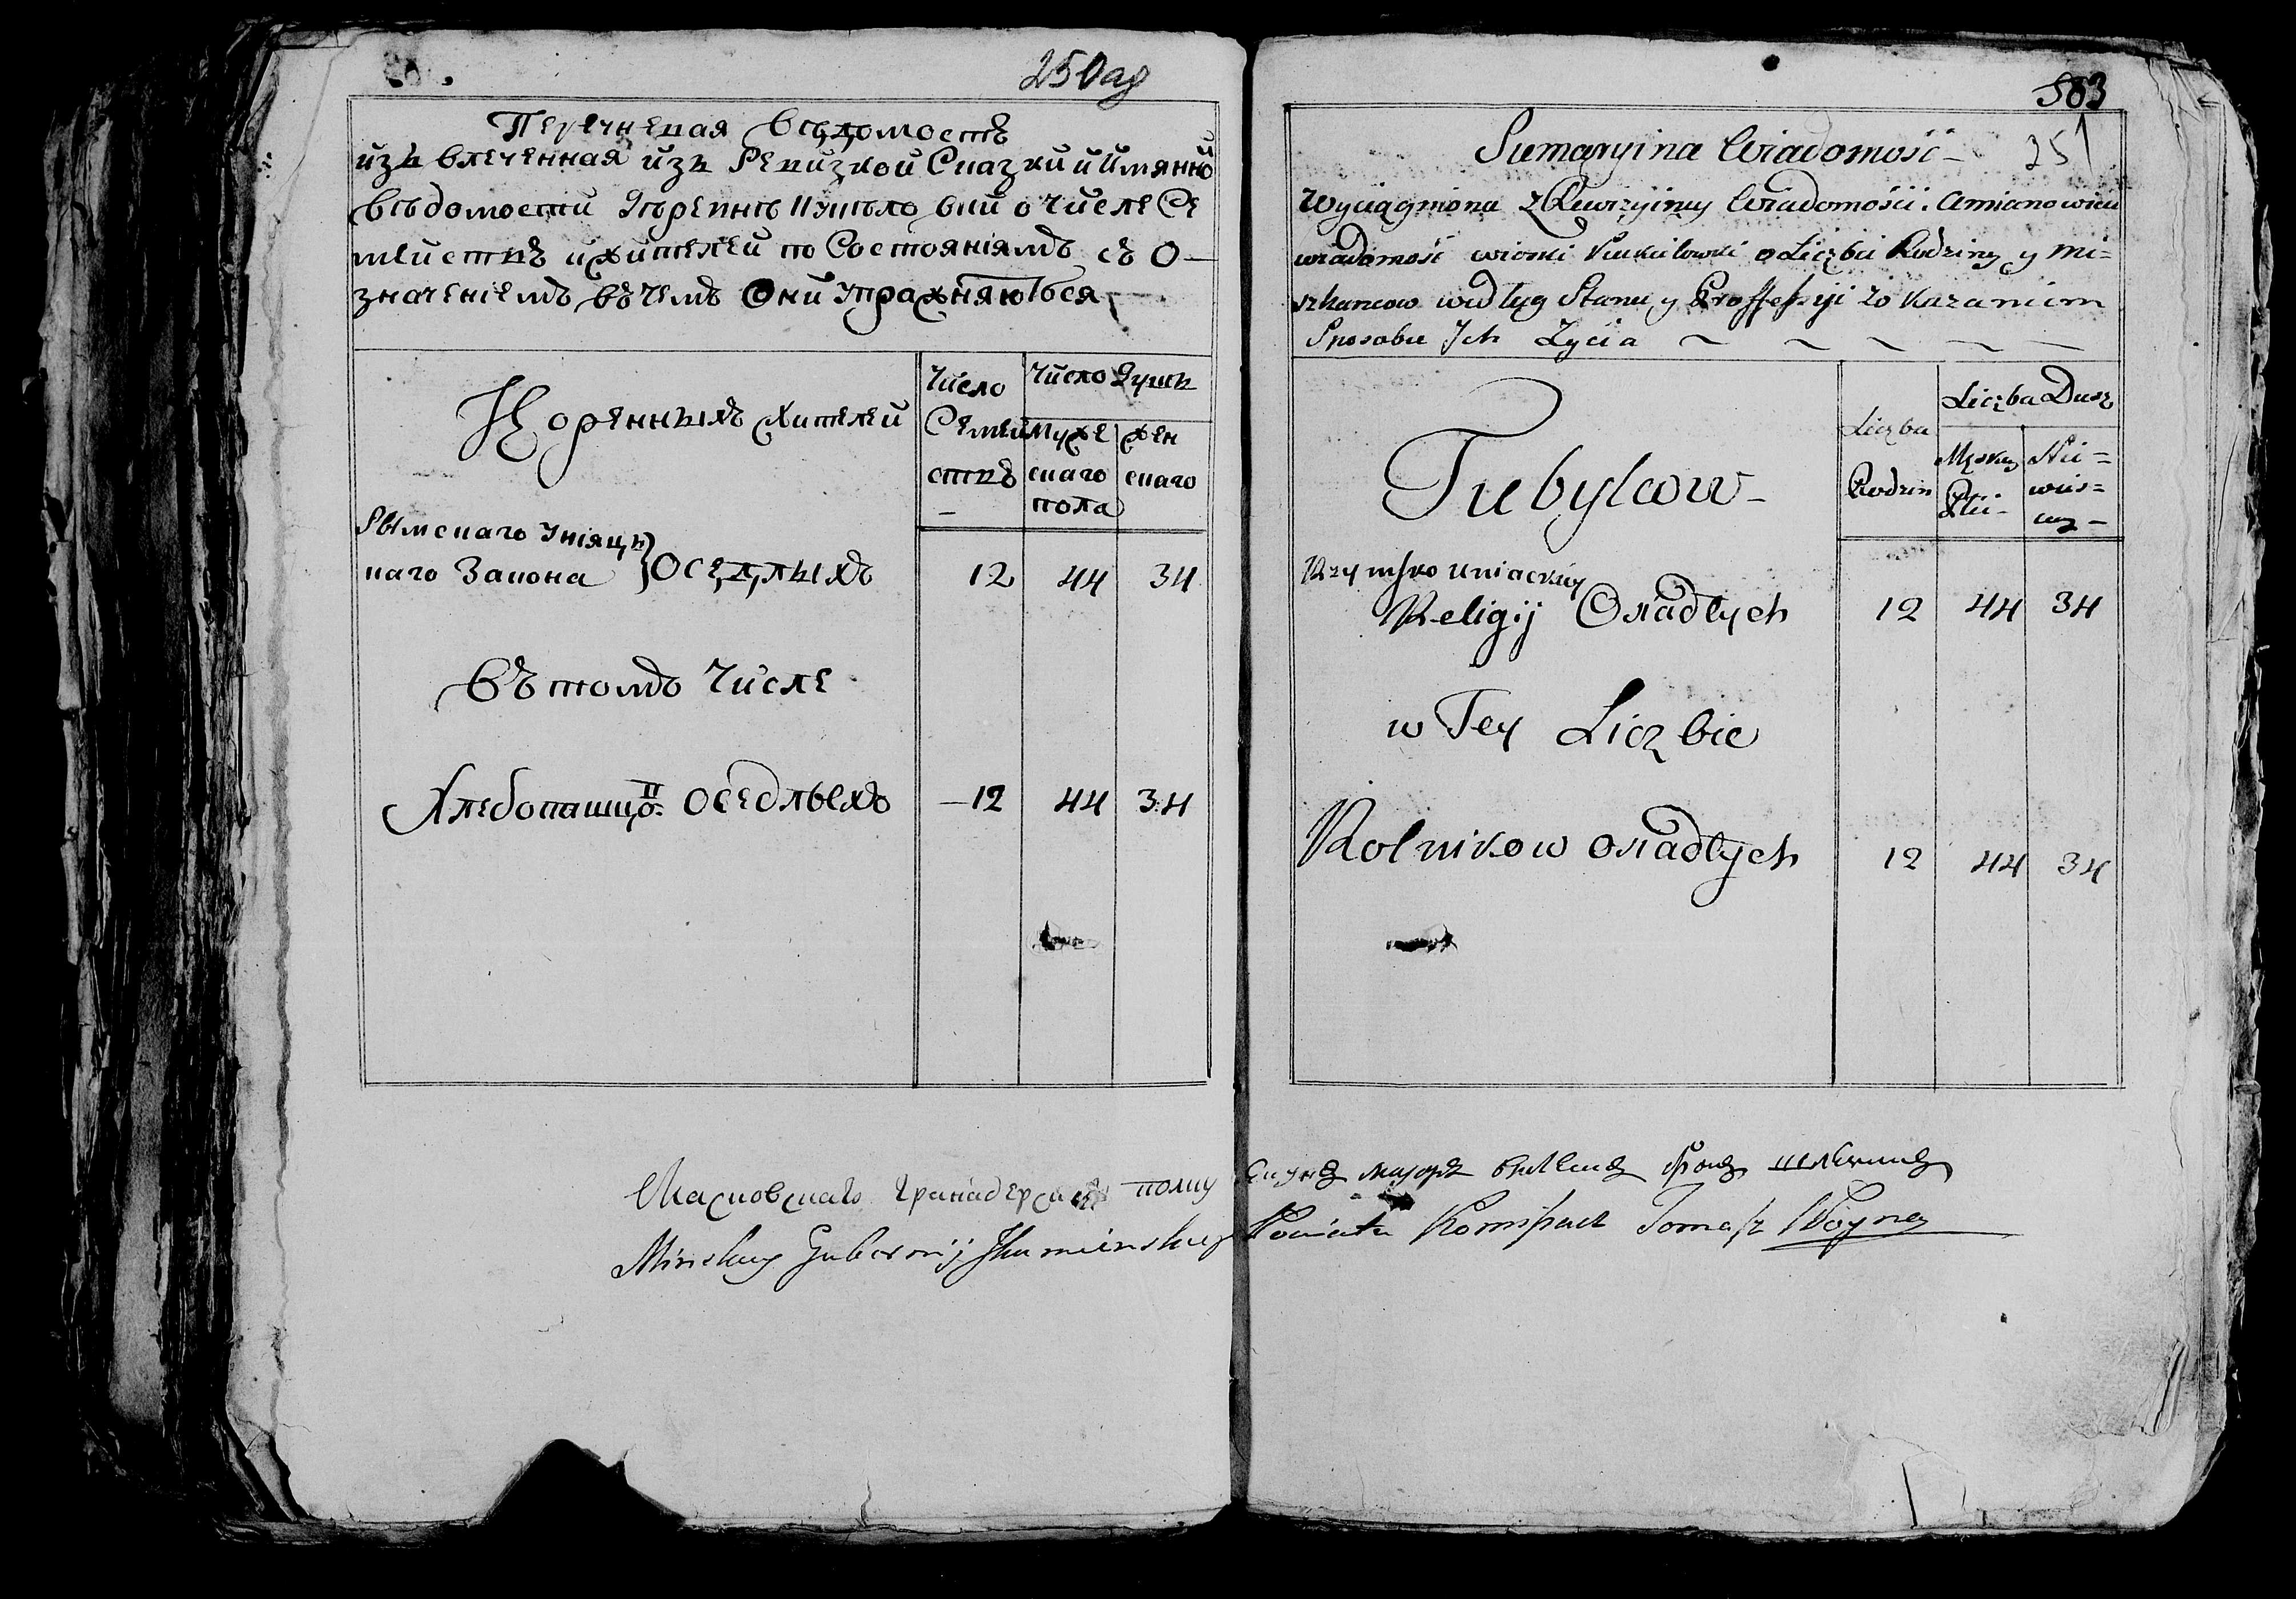 250аб
Перечневая вѣдомость
изъ влеченная изъ Ревизкой Сказки и Имянной
вѣдомости о числе Се
мействъ и жителей по Состоянiямъ съ О—
значенiемъ въ чемъ Они упражняються
Коренныхъ жителей
Число Семействъ
Число Душъ
мужескаго пола
женскаго
Рымскаго Унiяцъ
каго Закона } Оседлыхъ 12 44 34
Въ томъ Числе
Хлебопашцовъ оседлыхъ —12 44 34
503
Sumaryina Wiadomość 251
Wyciągniona z Rewizyiney Wiadomości. Amianowicie
wiadomość wioski o Liczbie Rodziny y Mi=
szkancow według Stanu y Proffessyi zo Kazaniem
Sposobu Jch Zycia
Tubylcow
Liczba Rodzin
Liczba Dusz
Męskiey Płci
Nie=
wies=
ciey
Rzymsko uniackiey
Religij Osiadłych 12 44 34
w Tey Liczbie
Rolnikow osiadłych 12 44 34
Московскаго гранадерскаго полку Секунд маиоръ фонъ
Minskiey Gubernij Jhumienskiego Powiatu Komissarz Tomasz Woyna